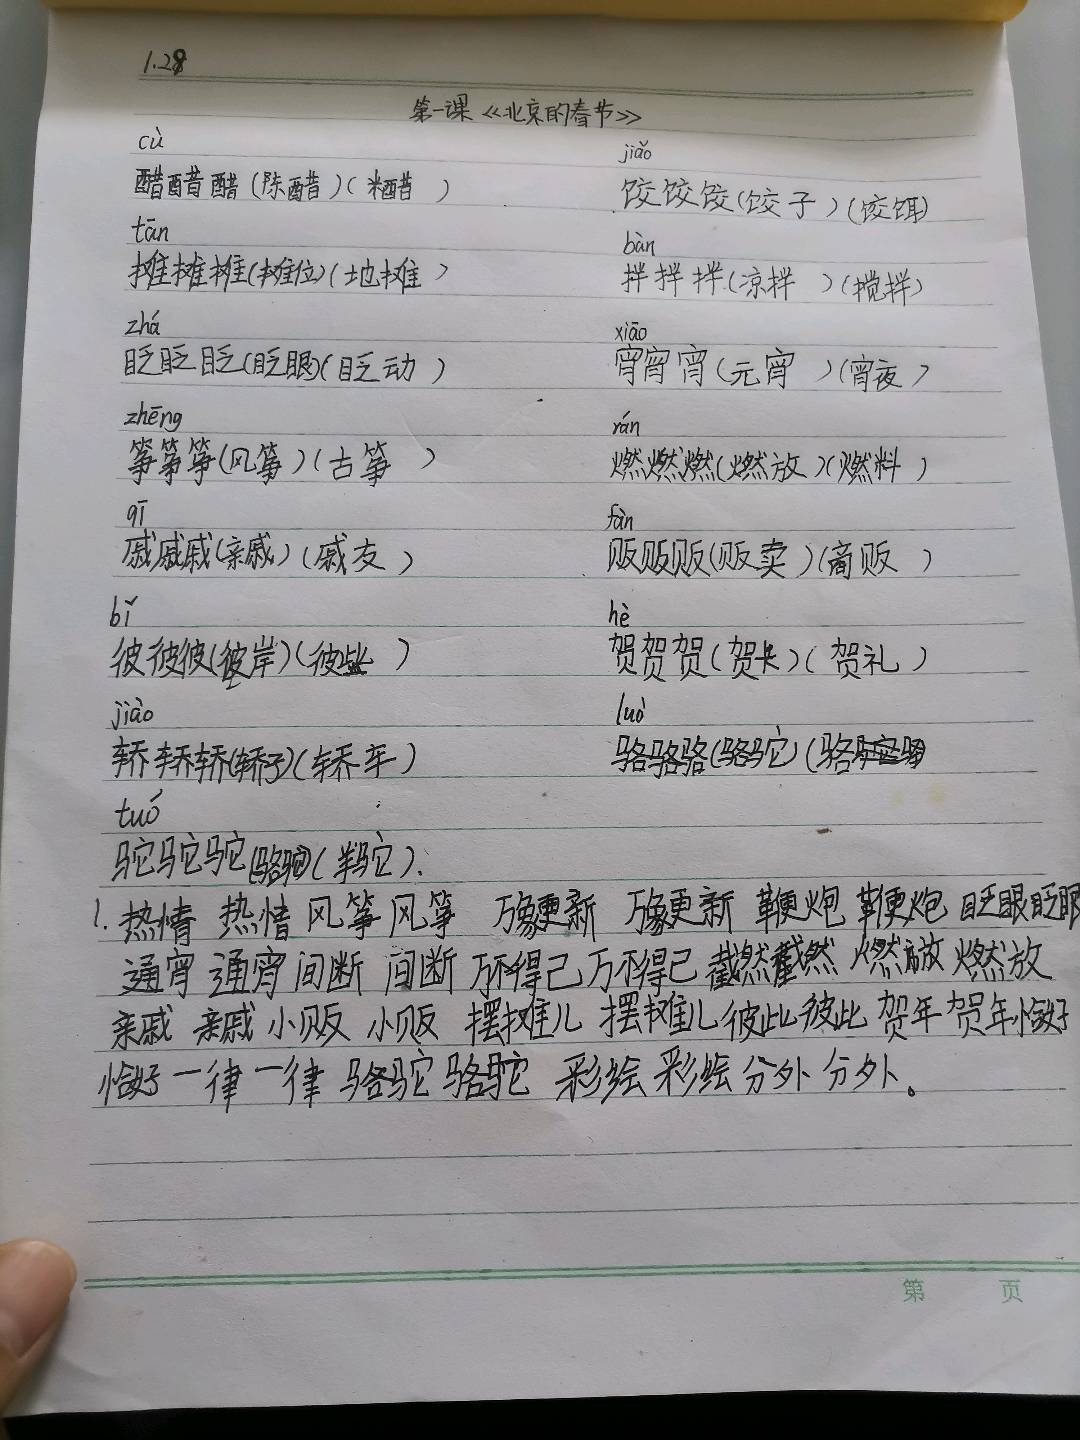 1.28
第一课《北京的春节》
cù jiǎo
醋醋醋(陈醋)(米醋) 饺饺饺(饺子)(饺饵)
tān bàn
摊摊摊(摊位)(地摊) 拌拌拌(凉拌)(搅拌)
zhǎ xiāo
眨眨眨(眨眼)(眨动) 宵宵宵(元宵)(宵夜)
zhēng rán
筝筝筝(风筝)(古筝) 燃燃燃(燃放)(燃料)
qī fàn
戚戚戚(亲戚)(戚友) 贩贩贩(贩卖)(商贩)
bǐ hè
彼彼彼(彼岸)(彼此) 贺贺贺(贺卡)(贺礼)
jiào luò
轿轿轿(轿子)(轿车) 骆骆骆(骆驼)(骆
tuó
驼驼驼(骆驼)(羊驼).
1. 热情 热情 风筝 风筝 万象更新 万象更新 鞭炮 鞭炮 眨眼 眨眼
通宵 通宵 间断 间断 万不得已 万不得已 截然 截然 燃放 燃放
亲戚 亲戚 小贩 小贩 摆摊儿 摆摊儿 彼此 彼此 贺年 贺年 恰好
恰好 一律 一律 骆驼 骆驼 彩绘 彩绘 分外 分外。
第 页